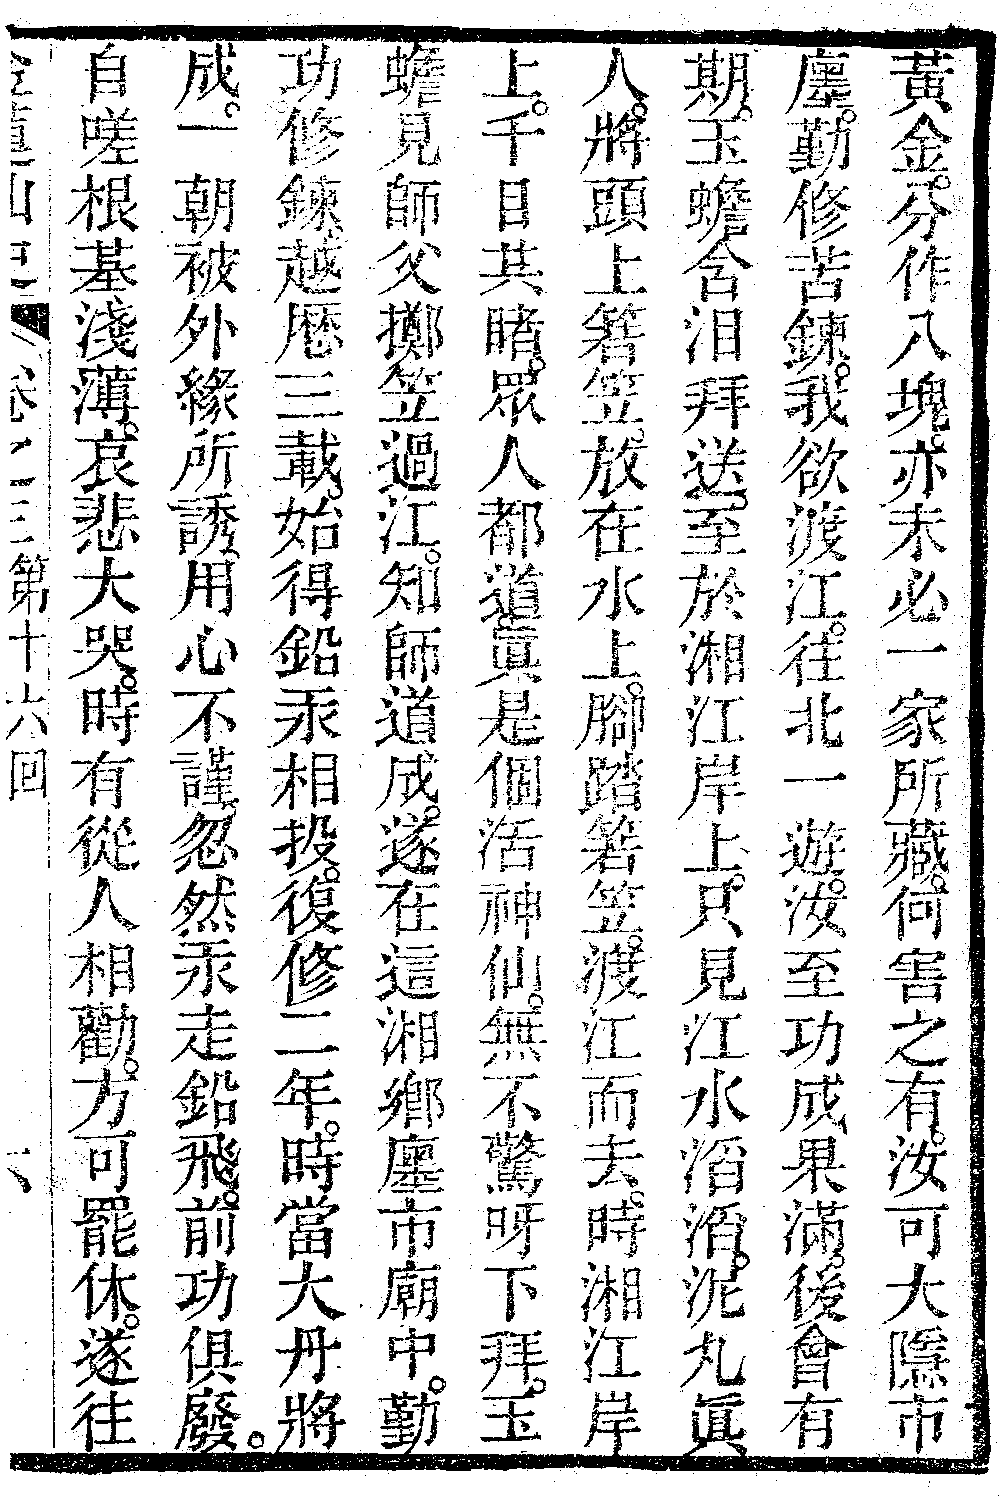 黃金。分作八塊。亦未必一家所藏。何害之有。汝可大隱市
廛。勤修苦鍊。我欲渡江。往北一遊。汝至功成果滿。後會有
期。玉蟾含泪拜送。至於湘江岸上。只見江水滔滔。泥丸眞
人。將頭上箬笠。放在水上。腳踏箬笠。渡江而去。時湘江岸
上。千目共睹。眾人都道。眞是個活神仙。無不驚呀下拜。玉
蟾見師父擲笠過江。知師道成。遂在這湘鄉廛市廟中。勤
功修鍊。越歷三載。始得鉛汞相投。復修二年。時當大丹將
成。一朝被外緣所誘。用心不謹。忽然汞走鉛飛。前功俱廢。
自嗟根基淺薄。哀悲大哭。時有從人相勸。方可罷休。遂往
卷之三第十六回 六